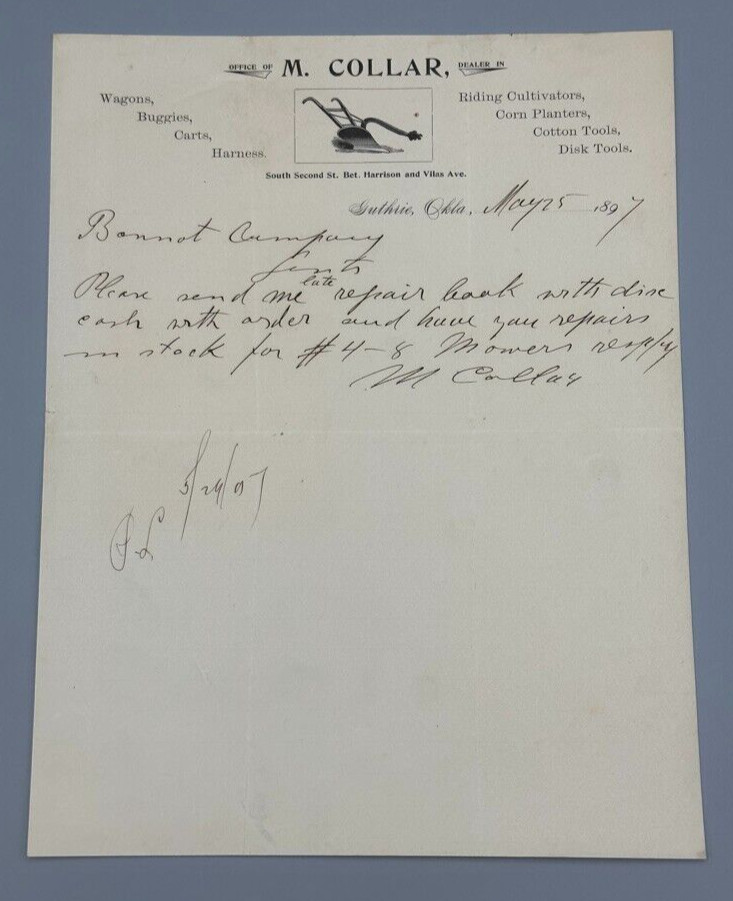 OFFICE OF M. COLLAR, DEALER IN
Wagons,
Buggies,
Carts,
Harness.
Riding Cultivators,
Corn Planters,
Cotton Tools,
Disk Tools.
South Second St. Bet. Harrison and Vilas Ave.
Guthrie, Okla, May 25 1897
Bonnot Company
Gents
Please send me late repair book with disc
cash with order and have you repairs
in stock for #4-8 Mowers
M Collar